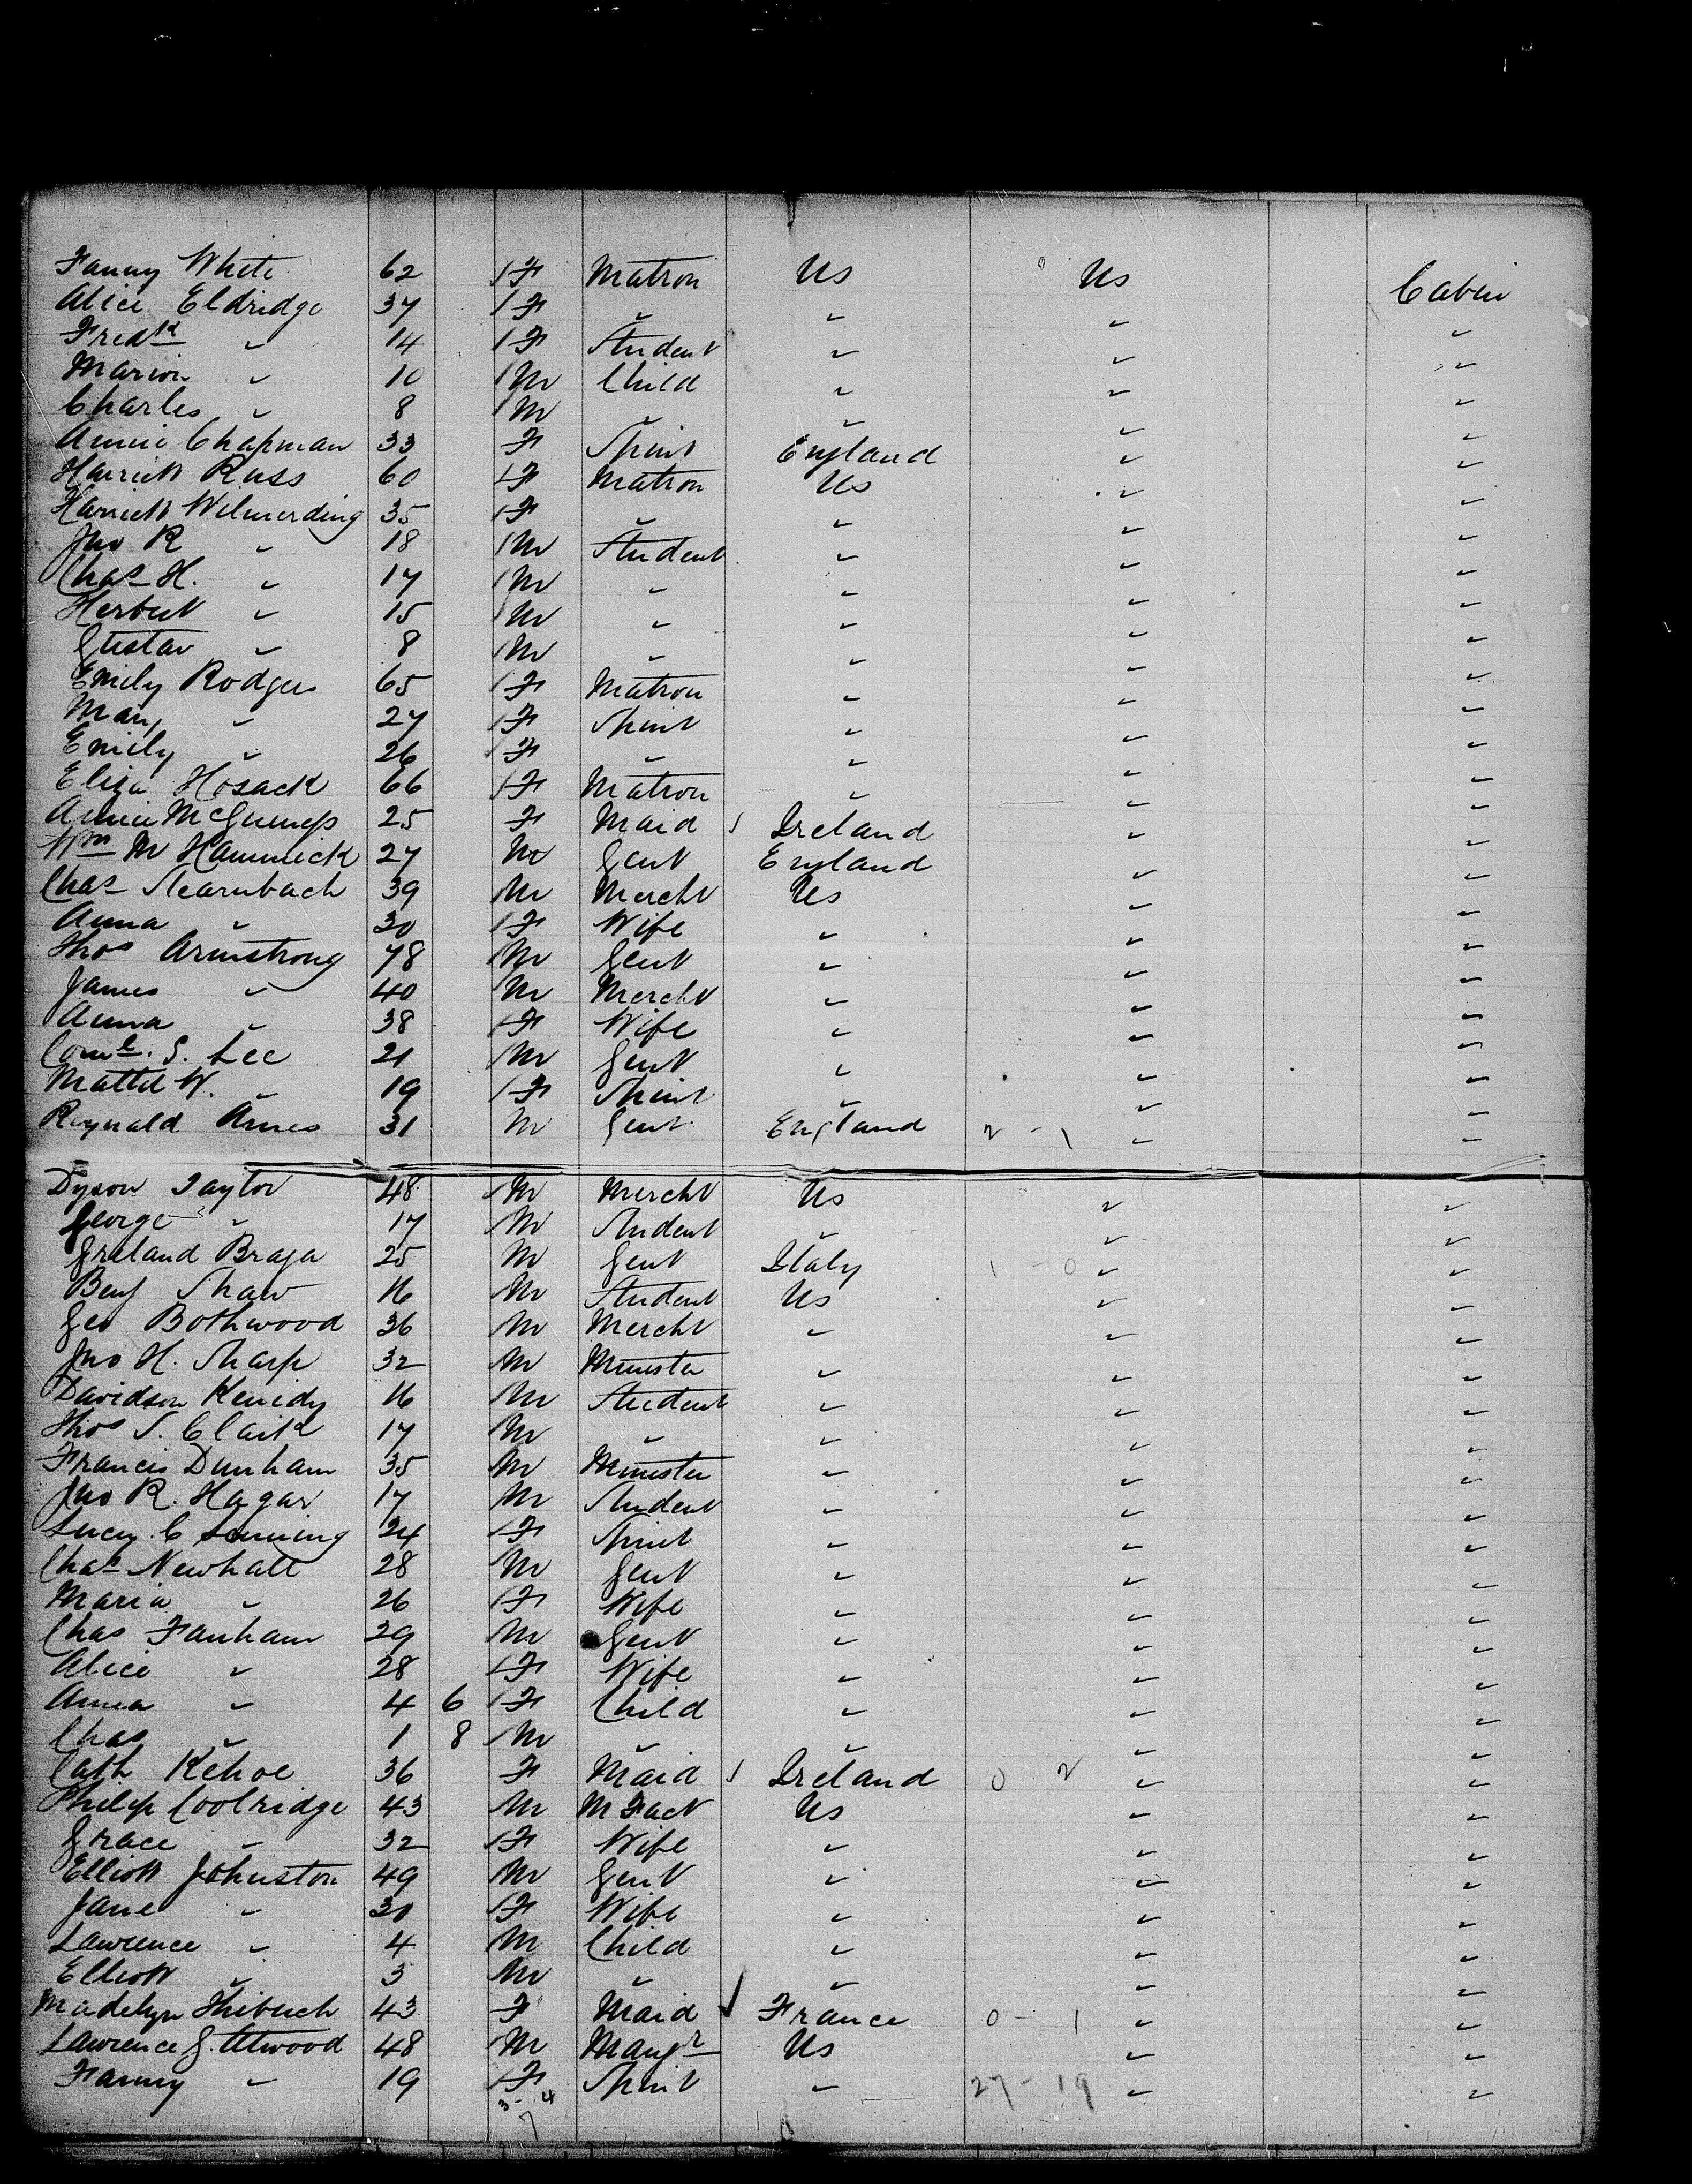 Fanny White 62 F Matron Us Us Cabin
Alice Eldridge 37 F " " " "
Fredk " 14 F Student " " "
Marion " 10 M Child " " "
Charles " 8 M " " " "
Annie Chapman 33 F Spins England " "
Harriett Russ 60 F Matron Us " "
Harriett Wilmerding 35 F " " " "
Jno R " 18 M Student " " "
Chas H. " 17 M " " " "
Herbert " 15 M " " " "
Gustav " 8 M " " " "
Emily Rodgers 65 F Matron " " "
Mary " 27 F Spins " " "
Emily " 26 F " " " "
Eliza Hosack 66 F Matron " " "
Annie 25 F Maid Ireland " "
Wm M Hammick 27 M Gent England " "
Chas Stearnbach 39 M Mercht Us " "
Anna " 30 F Wife " " "
Thos Armstrong 78 M Gent " " "
James " 40 M Mercht " " "
Anna " 38 F Wife " " "
S. Lee 21 M Gent " " "
W. " 19 F Spins " " "
Reynald Ames 31 M Gent England 2 - 1 " "
Dyson Taylor 48 M Mercht Us " "
George " 17 M Student " " "
Braga 25 M Gent Italy 1 - 0 " "
Benj Shaw 16 M Student Us " "
Geo Bothwood 36 M Mercht " " "
Jno H. Sharp 32 M Minister " " "
Davidson Kenidy 16 M Student " " "
Thos S. Clark 17 M " " " "
Francis Dunham 35 M Minister " " "
Jno R. Hagar 17 M Student " " "
Lucy C 24 F Spins " " "
Chas Newhall 28 M Gent " " "
Maria " 26 F Wife " " "
Chas Fanham 29 M Gent " " "
Alice " 28 F Wife " " "
Anna " 4 6 F Child " " "
Chas " 1 8 M " " " "
Cath Kehoe 36 F Maid Ireland 0 2 " "
Philip Coolridge 43 M M Fact Us " "
Grace " 32 F Wife " " "
Elliott Johnston 49 M Gent " " "
Jane " 30 F Wife " " "
Lawrence " 4 M Child " " "
Elliott " 3 M " " " "
Madelyn 43 F Maid France 0 - 1 " "
Lawrence G. Atwood 48 M Mangr Us " "
Fanny " 19 F Spins " 27 - 19 " "
3 - 4
7